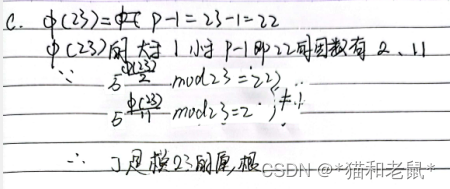 c. φ(23)= P-1=23-1=22
φ(23)的大于1小于P-1即22的因数有 2、11
∵ 5^(φ(23)/2) mod23=22
5^(φ(23)/11) mod23=2 ≠1
∴ 5是模23的原根
CSDN @*猫和老鼠*